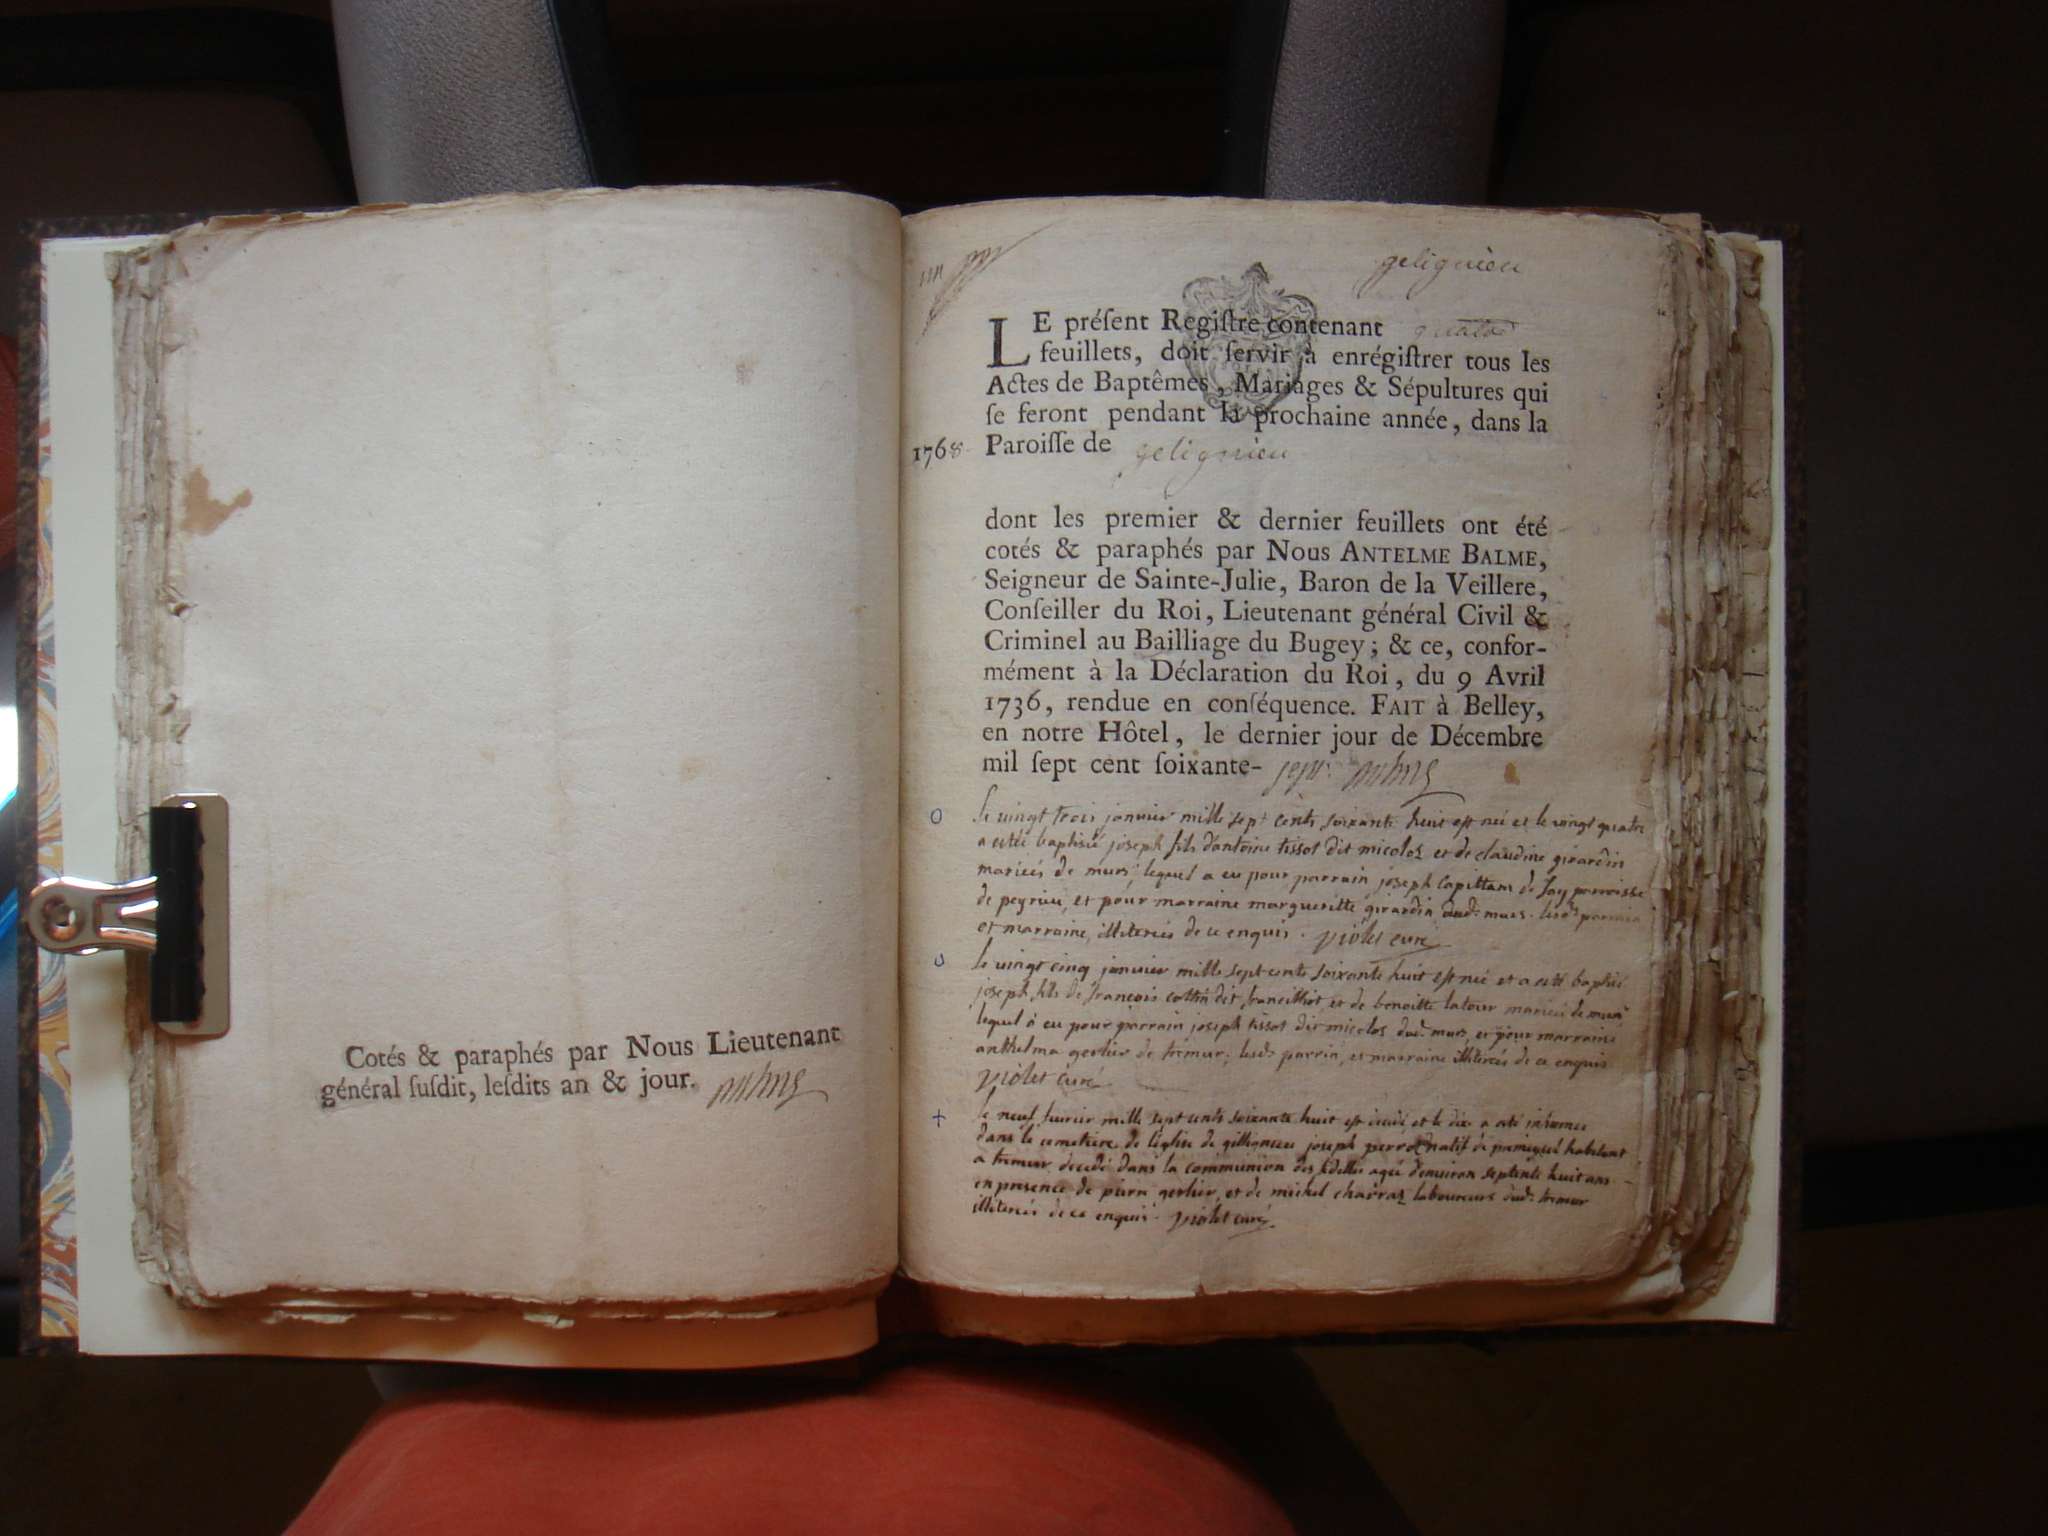 Cotés & paraphés par Nous Lieutenant
général ſuſdit, leſdits an & jour.
gelignieu
LE préſent Regiſtre contenant quatre
feuillets, doit ſervir à enrégiſtrer tous les
Actes de Baptêmes, Mariages & Sépultures qui
ſe feront pendant la prochaine année, dans la
1768 Paroiſſe de gelignieu
dont les premier & dernier feuillets ont été
cotés & paraphés par Nous ANTELME BALME,
Seigneur de Sainte-Julie, Baron de la Veillere,
Conſeiller du Roi, Lieutenant général Civil &
Criminel au Bailliage du Bugey; & ce, confor-
mément à la Déclaration du Roi, du 9 Avril
1736, rendue en conſéquence. FAIT à Belley,
en notre Hôtel, le dernier jour de Décembre
mil ſept cent ſoixante- sept
Le vingt trois janvier mille sept cents soixante huit est né et le vingt quatre
a esté baptisé joseph fils d'antoine tissot dit micolos et de claudine girardin
mariés de murs, lequel a eu pour parrain joseph Capittans de fay parroisse
de peyrieu, et pour marraine margueritte girardin dud. murs. lesds parrain
et marraine, illiterés de ce enquis. violet curé
le vingt cinq janvier mille sept cents soixante huit est né et a esté baptisé
joseph fils de francois cottin dit francilliot, et de benoitte latour mariés de murs
lequel a eu pour parrain joseph tissot dit micolos dud. murs, et pour marraine
anthelma gerlier de tremur, lesds parrin, et marraine illiterés de ce enquis
violet curé
+ le neuf fevrier mille sept cents soixante huit est decedé et le dix a esté inhumé
dans le cemetiere de l'eglise de gillignieu joseph natif de habitant
a tremur decedé dans la communion des fidelles agé d'environ septente huit ans
en presence de pierre gerlier, et de michel charraz laboureurs dud. tremur
illiterés de ce enquis. violet curé.